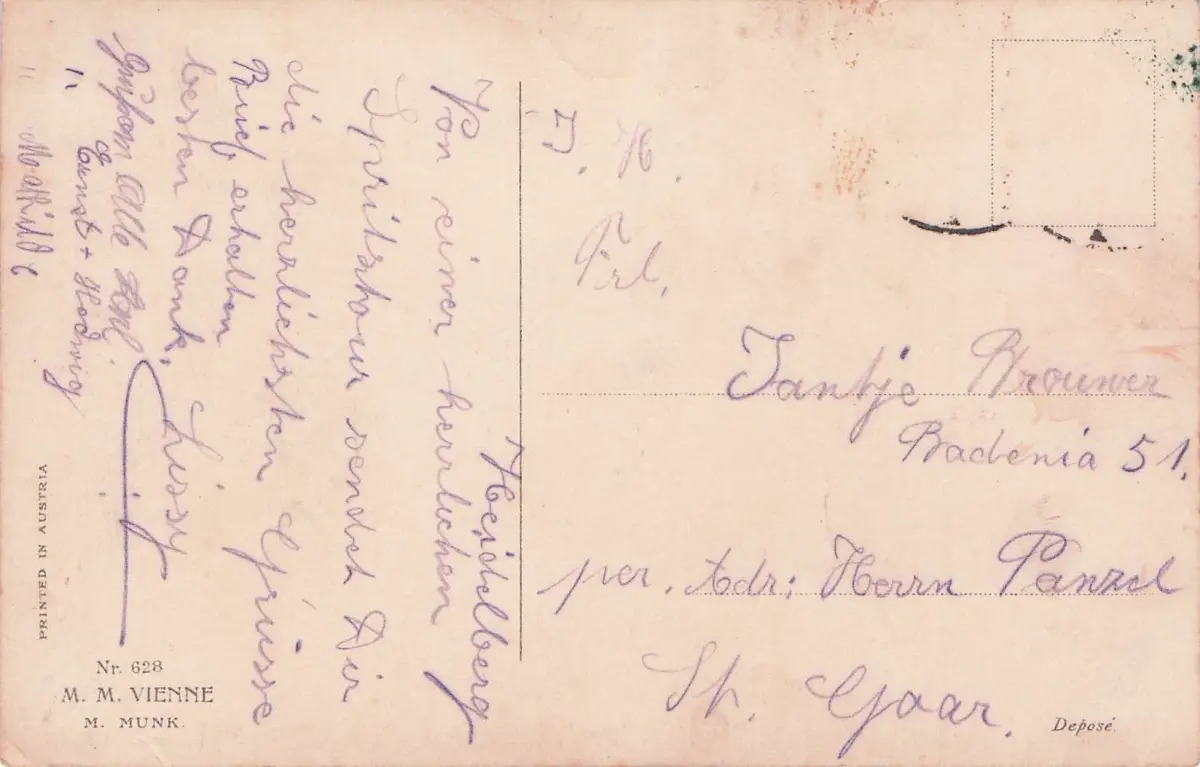 Heidelberg
Von einer herrlichen
Spritztour sendet Dir
die herrlichsten Grüsse
Brief erhalten
besten Dank. Lissy
Alle
Ernst + Hedwig
Mathilde
PRINTED IN AUSTRIA
Nr. 628
M. M. VIENNE
M. MUNK.
H.
Frl.
Jantje Brouwer
Badenia 51.
per. Adr: Herrn Panzel
St. Goar.
Deposé